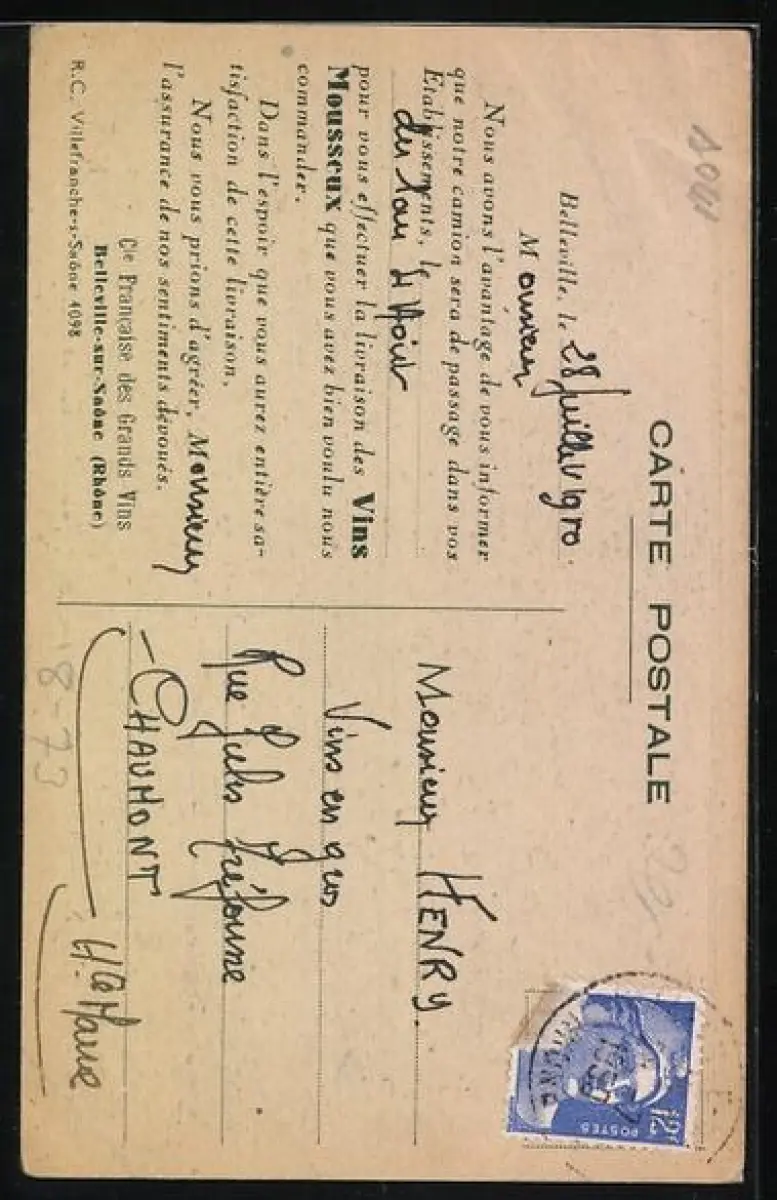 CARTE POSTALE
Belleville, le 28 Juillet 1950.
Monsieur
Nous avons l'avantage de vous informer
que notre camion sera de passage dans vos
Etablissements, le
du 1au 5 Août
pour vous effectuer la livraison des Vins
Mousseux que vous avez bien voulu nous
commander.
Dans l'espoir que vous aurez entière sa-
tisfaction de cette livraison,
Nous vous prions d'agréer, Monsieur
l'assurance de nos sentiments dévoués.
Cie Française des Grands Vins
Belleville-sur-Saône (Rhône)
R.C. Villefranche-s-Saône 4098
Monsieur HENRY.
Vins en gros
Rue Jules Tréfousse
- CHAUMONT
Hte Marne
8-73
12f
POSTES
RHONE